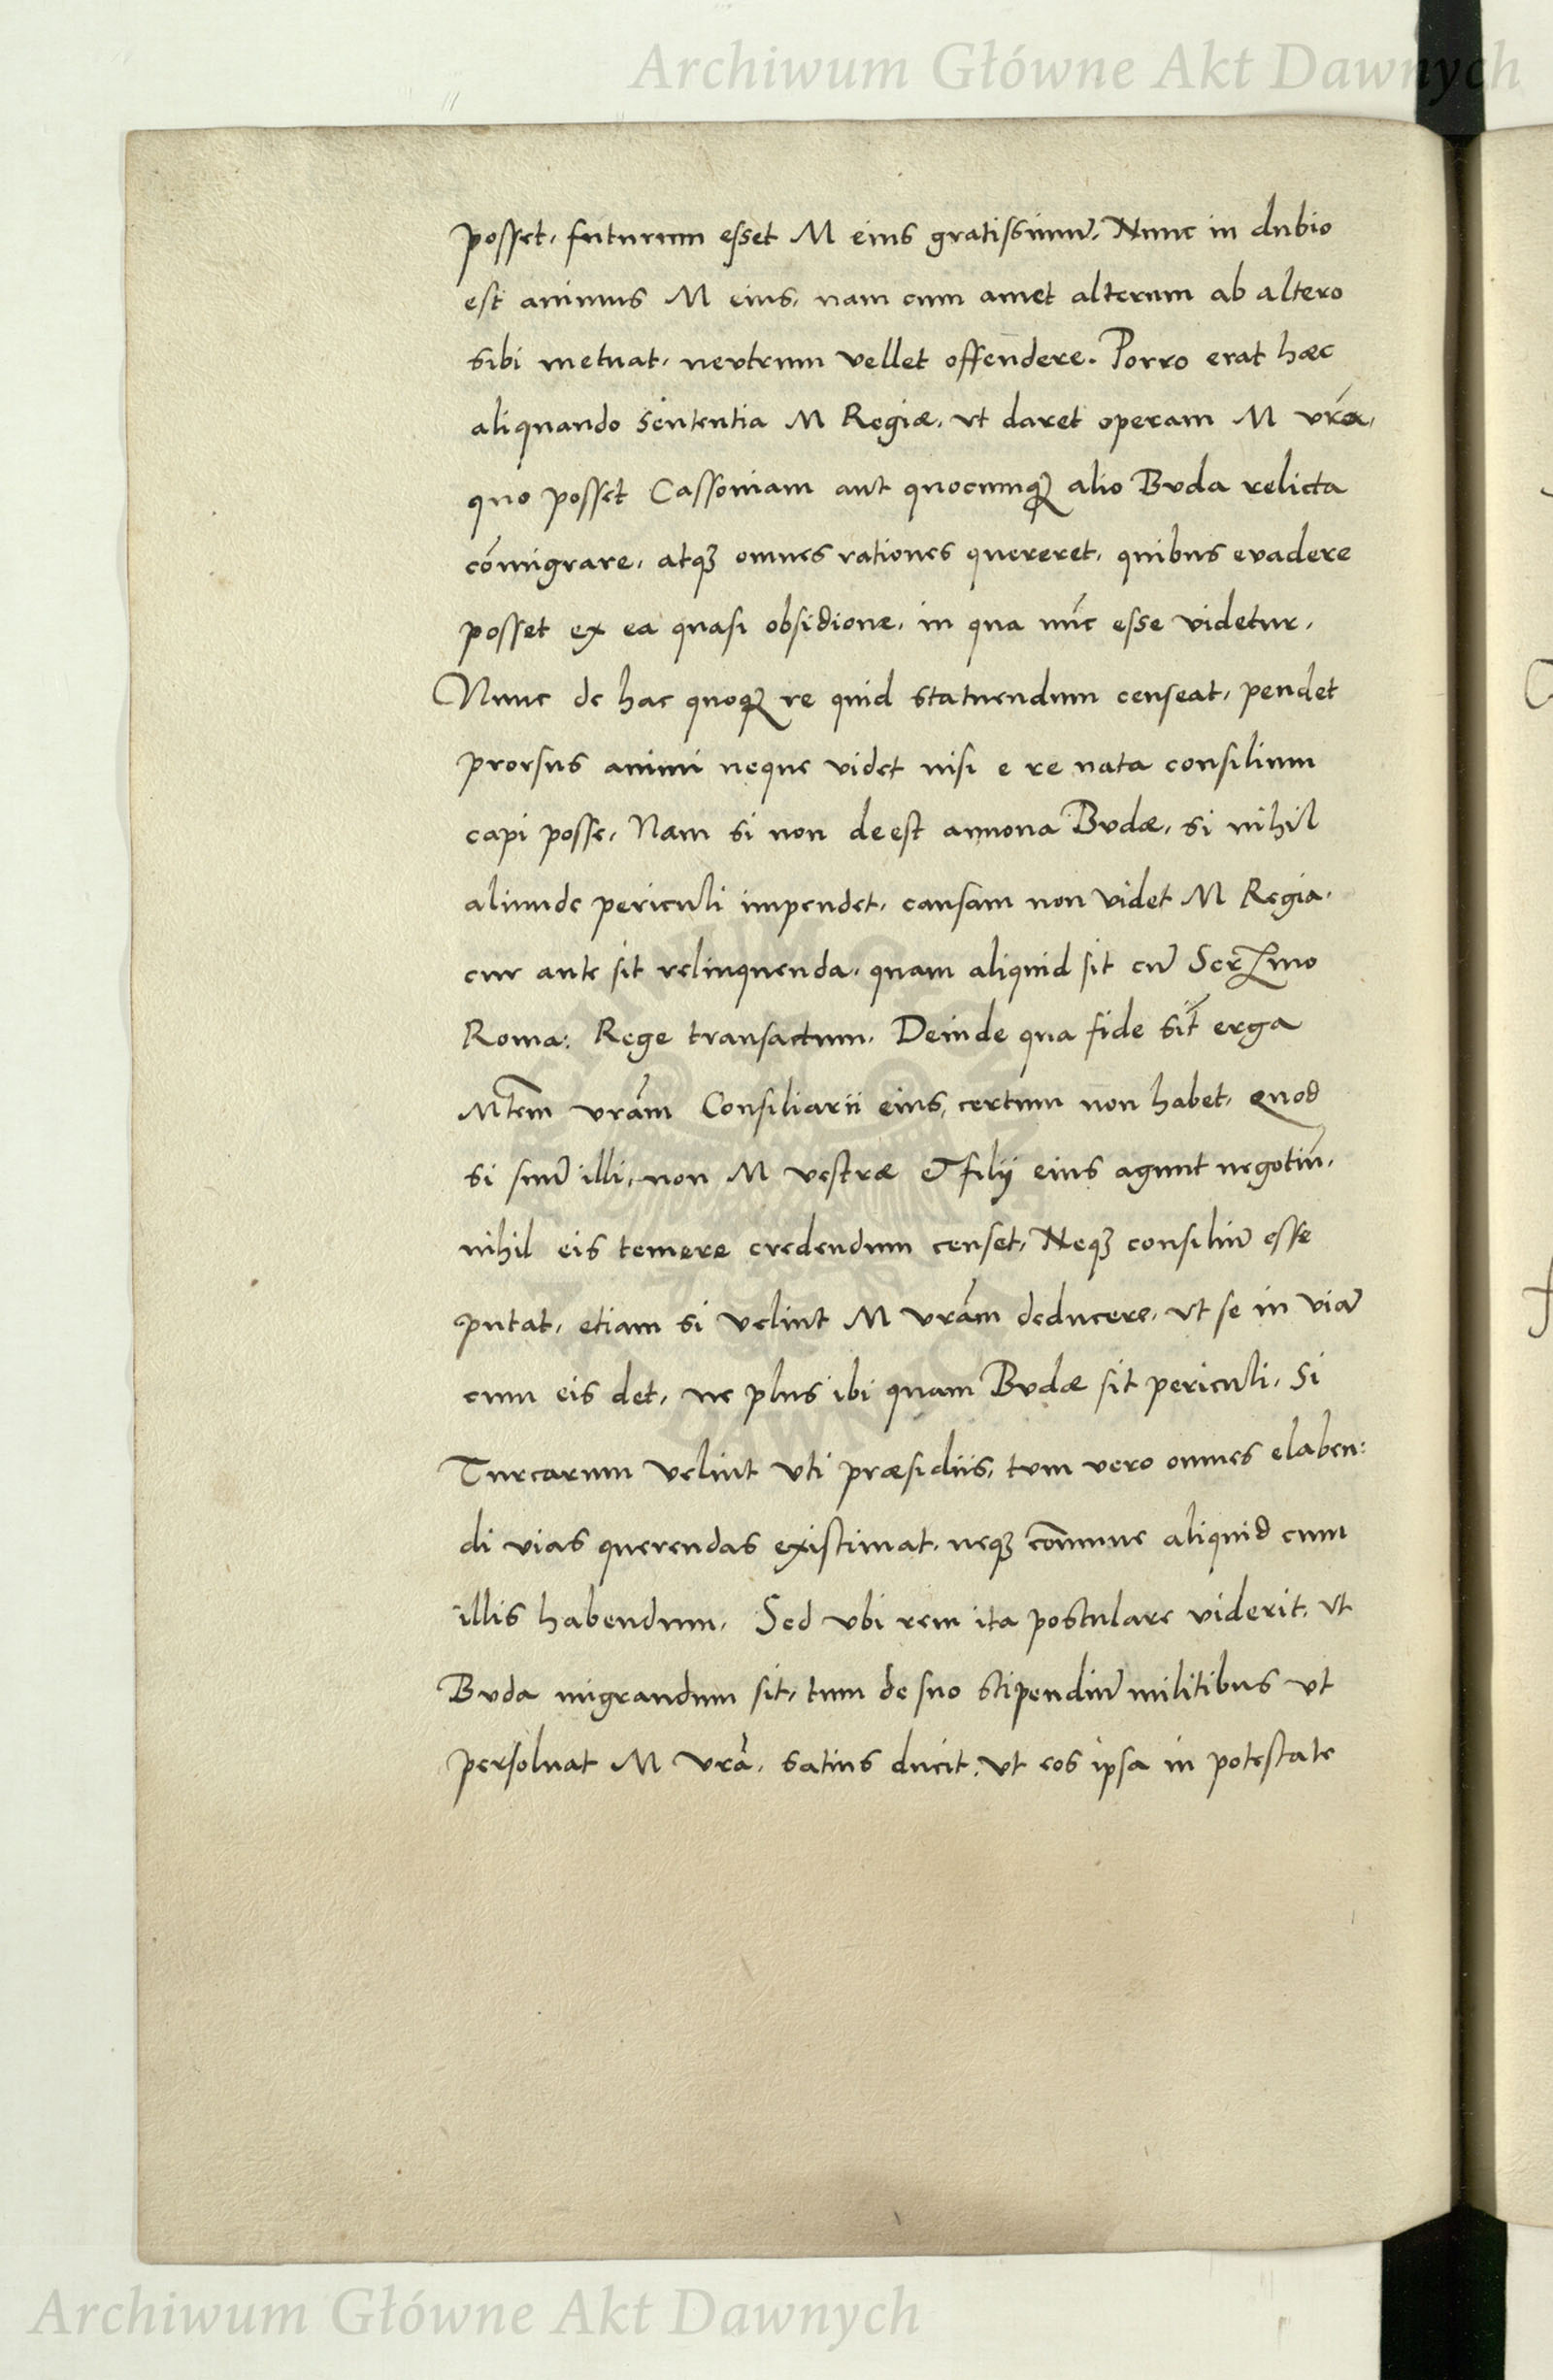 Archiwum Główne Akt Dawnych
posset, futurum esset M eius gratissimū. Nunc in dubio
est animus M eius, nam cum amet alterum ab altero
sibi metuat, neutrum vellet offendere. Porro erat hæc
aliquando sententia M Regiæ, vt daret operam M vrā,
quo posset Cassoviam aut quocumqȝ alio Buda relicta
cōmigrare, atqȝ omnes rationes quereret, quibus evadere
posset ex ea quasi obsidione, in qua nūc esse videtur.
Nunc de hac quoqȝ re quid statuendum censeat, pendet
prorsus animi neque videt nisi e re nata consilium
capi posse. Nam si non deest annona Budæ, si nihil
aliunde periculi impendet, causam non videt M Regia,
cur ante sit relinquenda, quam aliquid sit cū Serᵐᵒ
Roma: Rege transactum. Deinde qua fide sīt erga
Mtem vrām Consiliarii eius, certum non habet, quod
si suū illi, non M vestræ et filij eius agunt negotiū,
nihil eis temere credendum censet, Neqȝ consiliū esse
putat, etiam si velint M vrām deducere, vt se in viā
cum eis det, ne plus ibi quam Budæ sit periculi. Si
Turcarum velint vti præsidiis, tum vero omnes elaben:
di vias querendas existimat, neqȝ cōmune aliquid cum
illis habendum. Sed vbi rem ita postulare viderit, vt
Buda migrandum sit, tum de suo stipendiū militibus vt
persoluat M vrā, satius ducit, vt eos ipsa in potestate
ARCHIWUM GŁÓWNE AKT DAWNYCH
Archiwum Główne Akt Dawnych